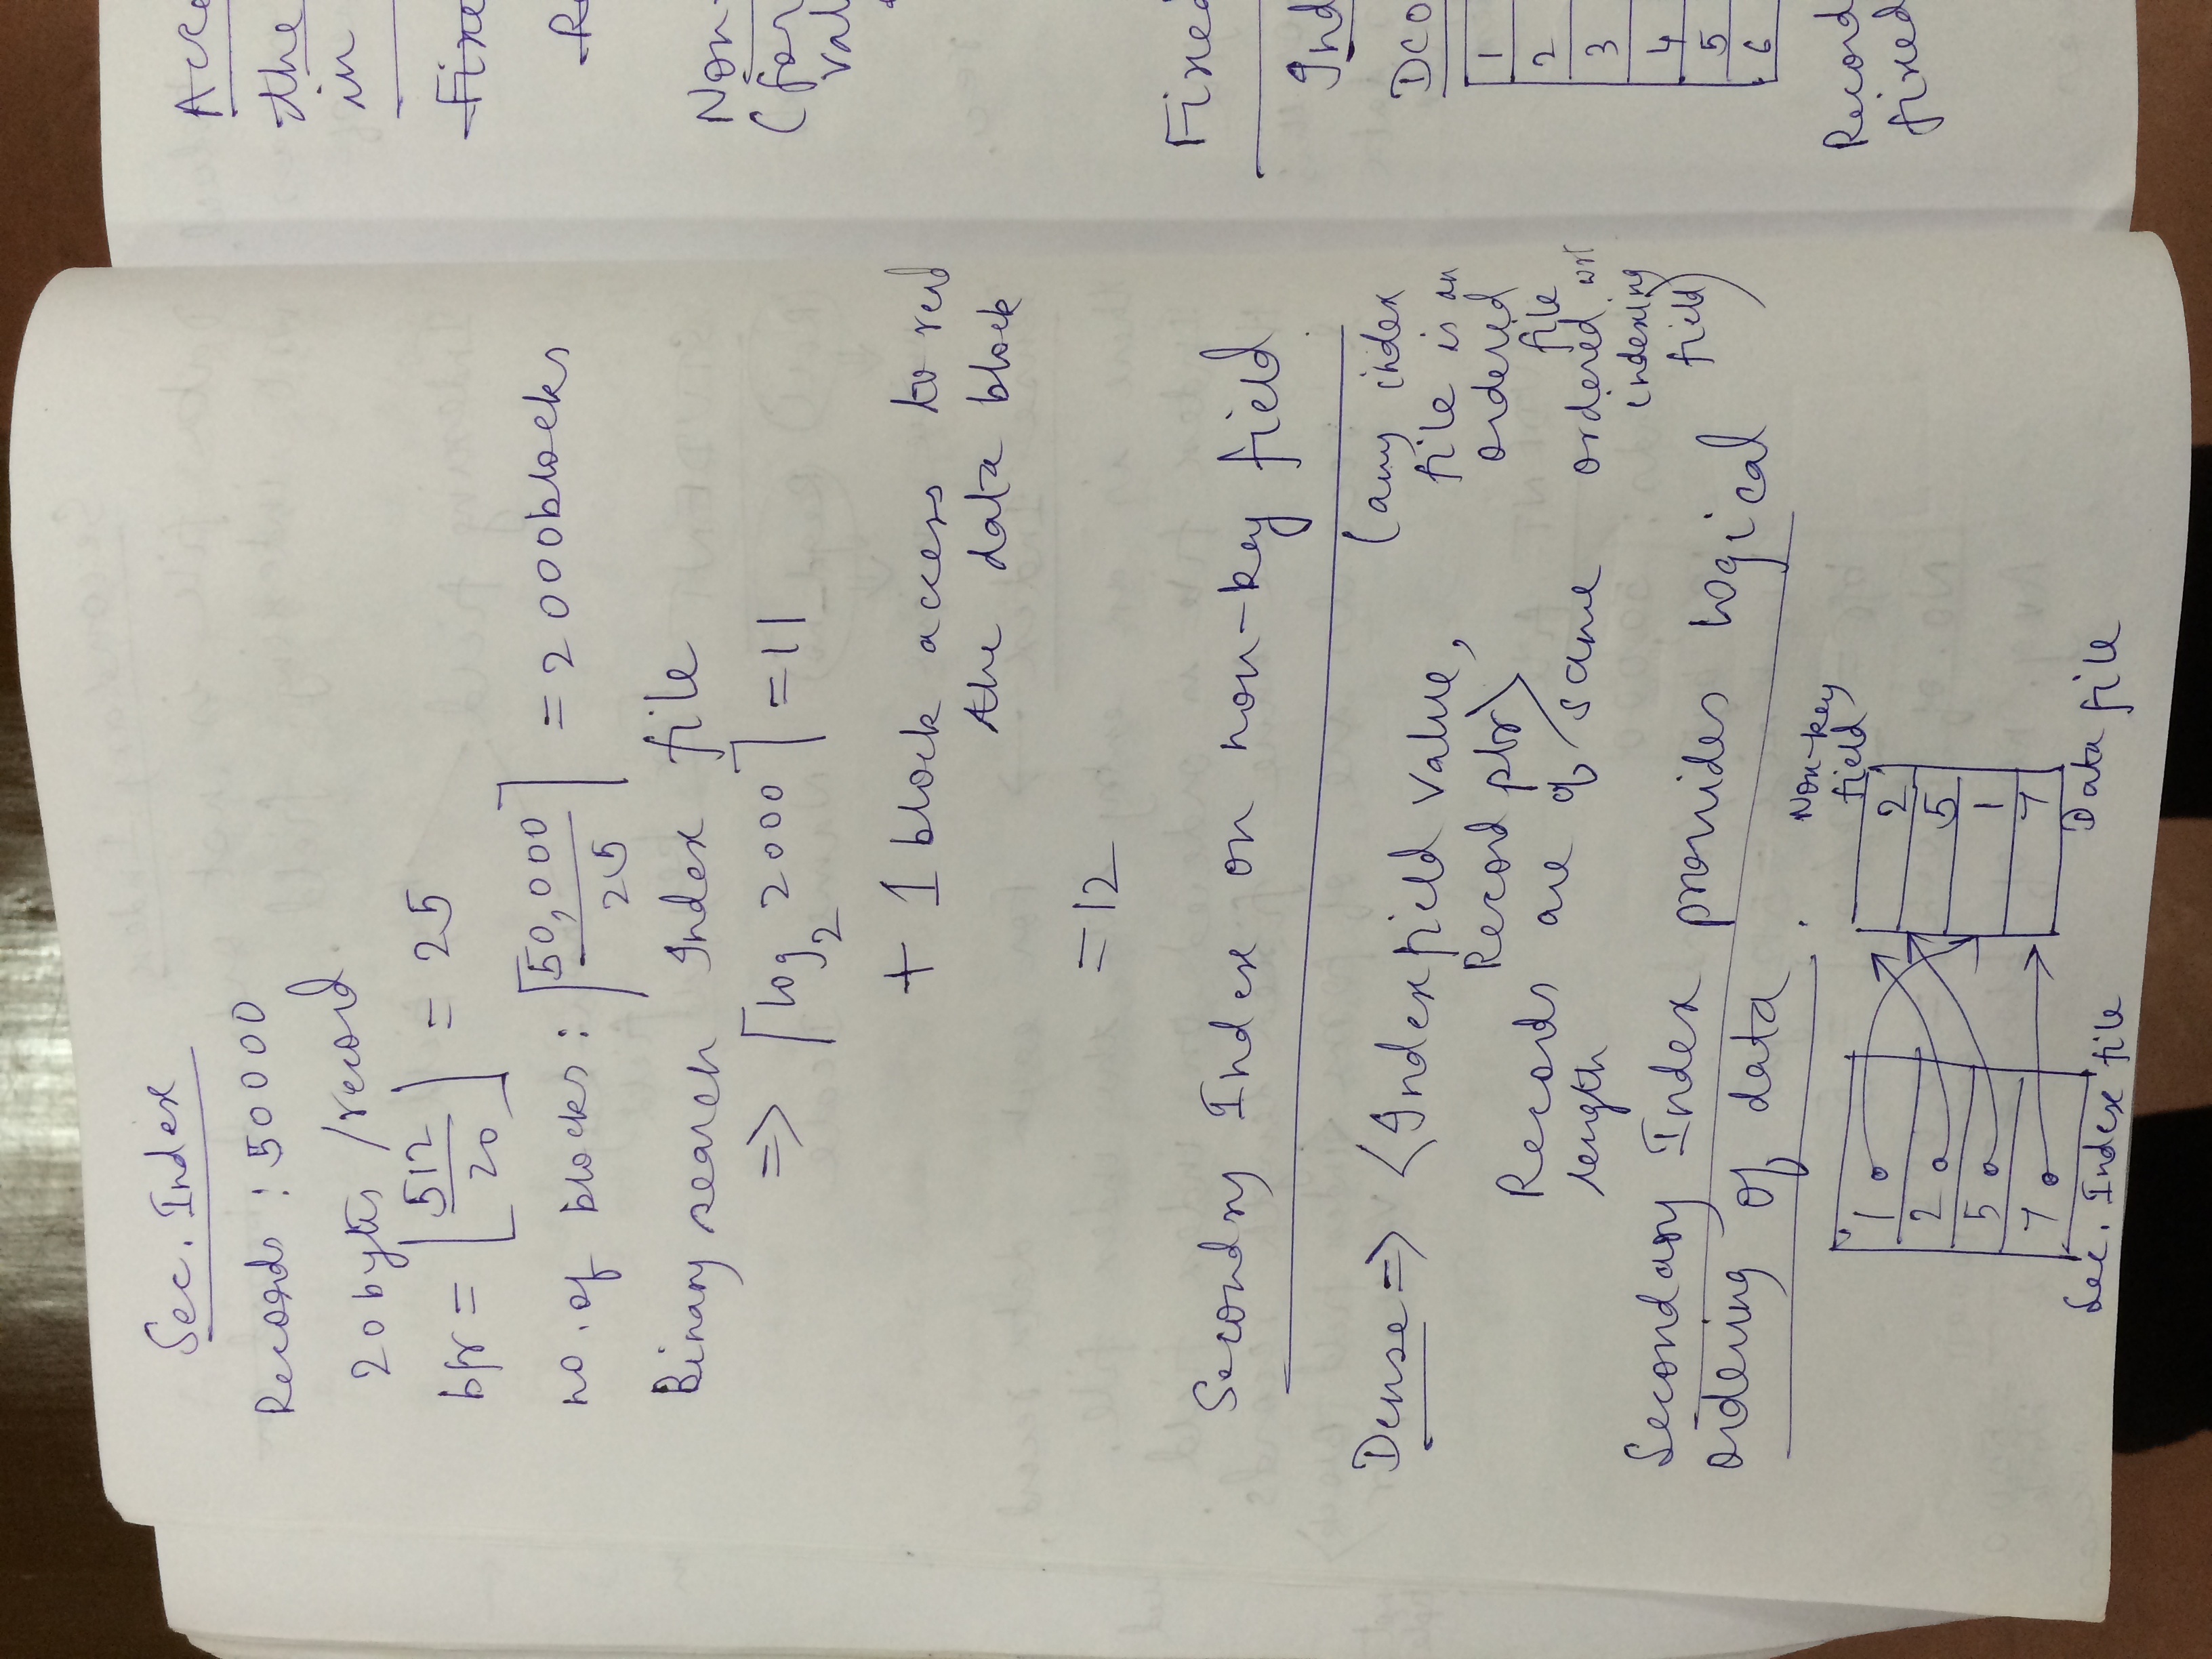 Sec. Index
Records : 50000
20 bytes /record
bfr = ⌊512/20⌋ = 25
no. of blocks : ⌈50,000/25⌉ = 2000 blocks
Binary search Index file
=> ⌈log₂ 2000⌉ = 11
+ 1 block access to read
the data block
= 12
Secondry Index on non-key field
Dense => ⟨Indexfield value,
Record ptr⟩
Records are of same
length
(any index
file is an
ordered
file
ordered wrt
indexing
field)
Secondary Index provides logical
ordering of data.
1
2
5
7
Sec. Index file
Non-key
field
2
5
1
7
Data file
the
in
Non-
(for
Fixed
1
2
3
4
5
6
Record
fixed